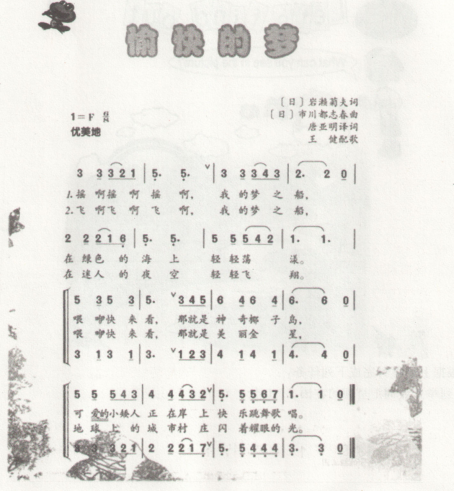 愉快的梦
〔日〕岩濑菊夫词
〔日〕市川都志春曲
唐亚明译词
王健配歌
1=F 6/8
优美地
3 3 3 2 1 | 5. 5. ∨ | 3 3 3 4 3 | 2. 2 0 |
1.摇啊摇啊摇啊， 我的梦之船，
2.飞啊飞啊飞啊， 我的梦之船，
2 2 2 1 6 | 5. 5. | 5 5 5 4 2 | 1. 1. |
在绿色的海上轻轻荡漾。
在迷人的夜空轻轻飞翔。
5 3 5 3 | 5. ∨ 3 4 5 | 6 4 6 4 | 6. 6 0 |
喂吻快来看，那就是神奇椰子岛，
喂吻快来看，那就是美丽金星，
3 1 3 1 | 3. ∨ 1 2 3 | 4 1 4 1 | 4. 4 0 |
5 5 5 4 3 | 4 4 4 3 2 ∨ | 5. 5 5 6 7 | 1. 1 0 ‖
可爱的小矮人正在岸上快乐跳舞歌唱。
地球上的城市村庄闪着耀眼的光。
3 3 3 2 1 | 2 2 2 1 7 ∨ | 5. 5 4 4 4 | 3. 3 0 ‖